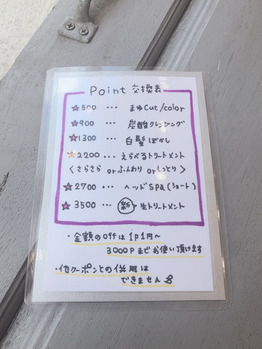 Point 交換表
☆500 … まゆCut/color
☆900 … 炭酸クレンジング
☆1300 … 白髪ぼかし
☆2200 … えらべるトリートメント
(さらさら or ふんわり or しっとり)
☆2700 … ヘッドSPA(ショート)
☆3500 … 生トリートメント
・金額のoffは1p1円〜
3000Pまでお使い頂けます
・他クーポンとの併用は
できません